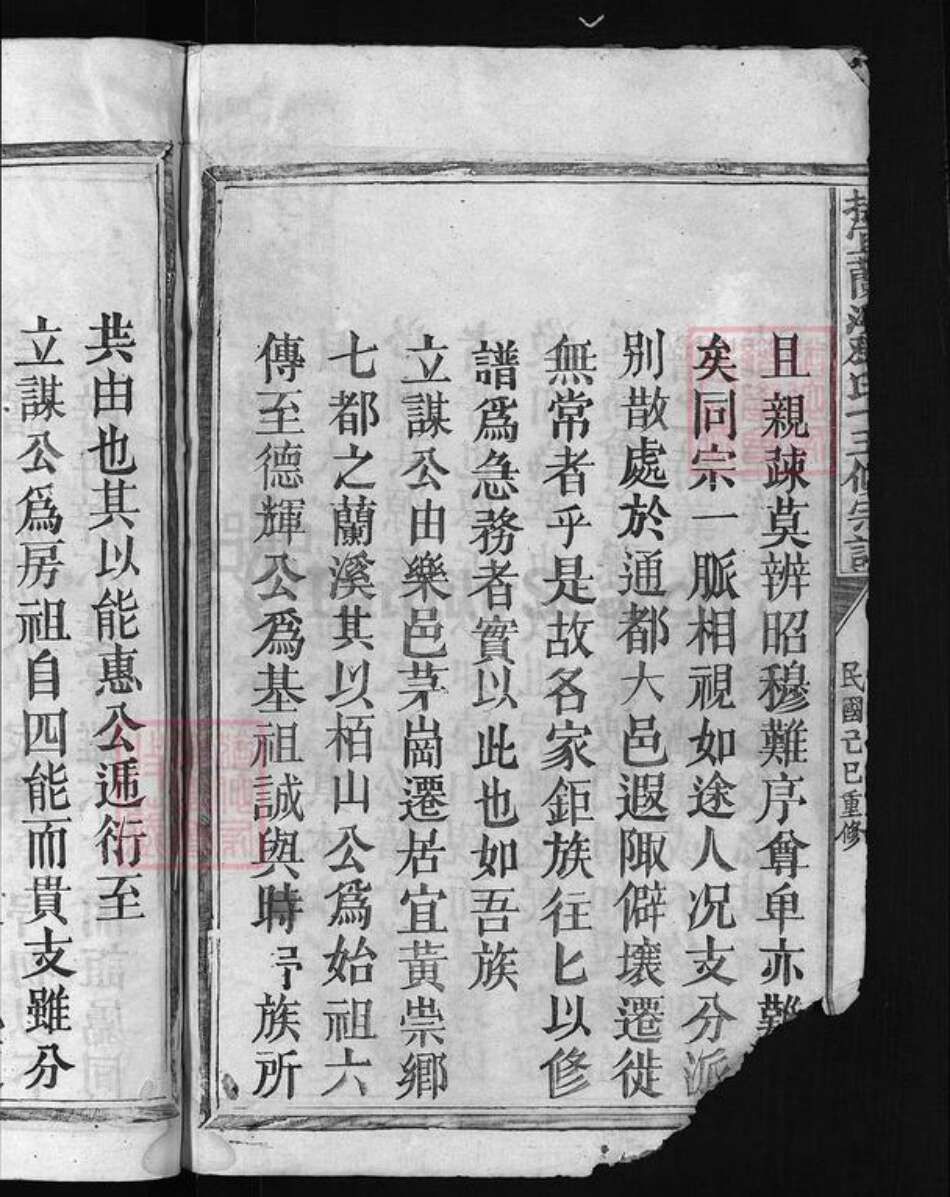 蘭溪 氏十三修宗譜
民國己巳重修
且親疎莫辨昭穆難序尊卑亦難
矣同宗一脈相視如途人况支分派
别散處於通都大邑遐陬僻壤遷徙
無常者乎是故名家鉅族往匕以修
譜爲急務者實以此也如吾族
立謀公由樂邑茅崗遷居宜黃崇鄉
七都之蘭溪其以栢山公爲始祖六
傳至德輝公爲基祖誠與時 族所
共由也其以能惠公遞衍至
立謀公爲房祖自四能而貫支雖分